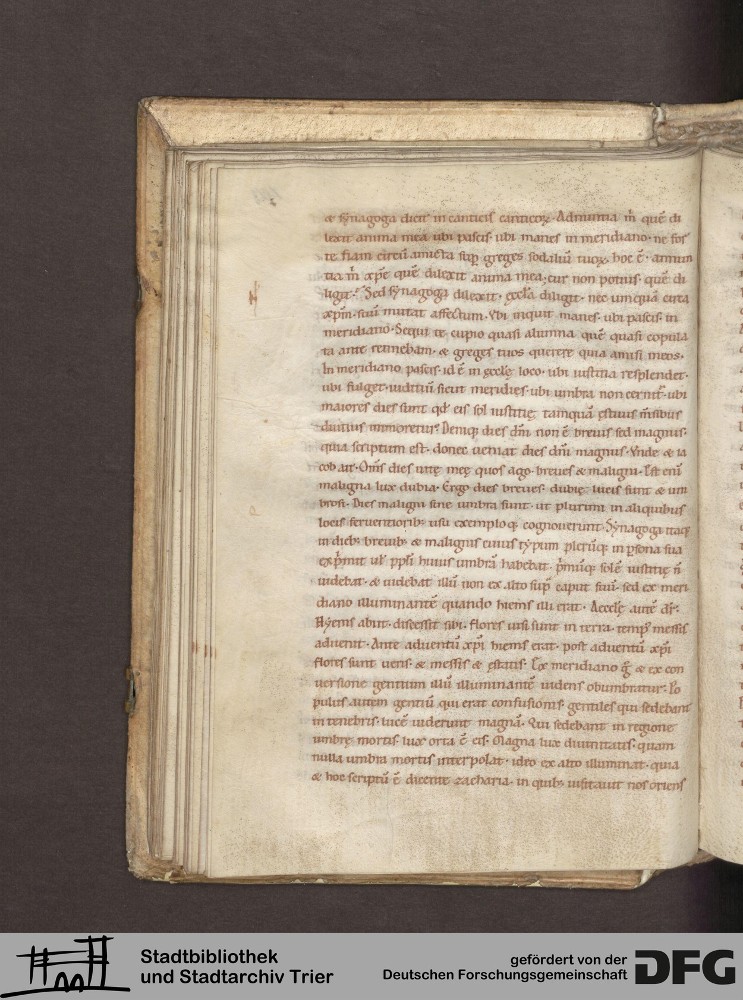 & synagoga dicit in canticis canticoꝝ. Adnuntia m̅ que̅ di
lexit anima mea ubi pascis. ubi manes in meridiano. ne for
te fiam circu̅ amicta sup greges sodaliu̅ tuoꝝ. hoc e̅. annun
tia m̅ xp̅e que̅ dilexit anima mea, cur non potius. que̅ di
ligit? Sed synagoga dilexit. ęccl̅a diligit. nec umqua̅ circa
xp̅m. suu̅ mutat affectum. Vbi inquit manes. ubi pascis. in
meridiano. Sequi te cupio quasi alumna. que̅ quasi copula
ta ante tenebam. & greges tuos querere quia amisi meos.
In meridiano pascis. id e̅ in ęcclę loco. ubi iustitia resplendet.
ubi fulget iudiciu̅ sicut meridies. ubi umbra non cernit. ubi
maiores dies sunt qd̅ eis sol iustitię tamqua̅ ęstiuis m̅sibus
diutius inmoretur? Deniq; dies dn̅i non e̅ breuis sed magnus.
quia scriptum est. donec ueniat dies dn̅i magnus. Vnde & ia
cob ait. Om̅s dies uitę meę quos ago. breues & maligni. Est eni̅
maligna lux dubia. Ergo dies breues. dubię lucis sunt & um
brosi. Dies maligni sine umbra sunt. ut plurimi in aliquibus
locis feruentiorib; usu exemploq; cognouerunt. Synagoga itaq;
in dieb; breuib; & malignis cuius typum pleru̅q; in p̱sona sua
exp̍mit ul̅ pp̅li huius umbra̅ habebat. p̍mu̅q; sole̅ iustitię n̅
uidebat. & uidebat illu̅ non ex alto sup̱ caput suu̅. sed ex meri
diano illuminante̅ quando hiems illi erat. Aecclę aute̅ dr̅.
Hyems abiit. discessit sibi. flores uisi sunt in terra. temp; messis
aduenit. Ante aduentu̅ xp̅i hiems erat. post aduentu̅ xp̅i
flores sunt ueris. & messis & ęstatis. Ex meridiano g̊ & ex con
uersione gentium illu̅ illuminante̅ uidens obumbratur. Po
pulus autem gentiu̅ qui erat confusionis gentiles qui sedebant
in tenebris. luce̅ uiderunt magna̅. Qui sedebant in regione
umbrę mortis. lux orta e̅ eis. Magna lux diuinitatis. quam
nulla umbra mortis interpolat. ideo ex alto illuminat. quia
& hoc scriptu̅ e̅ dicente zacharia. in quib; uisitauit nos oriens
Stadtbibliothek
und Stadtarchiv Trier
gefördert von der
Deutschen Forschungsgemeinschaft
DFG